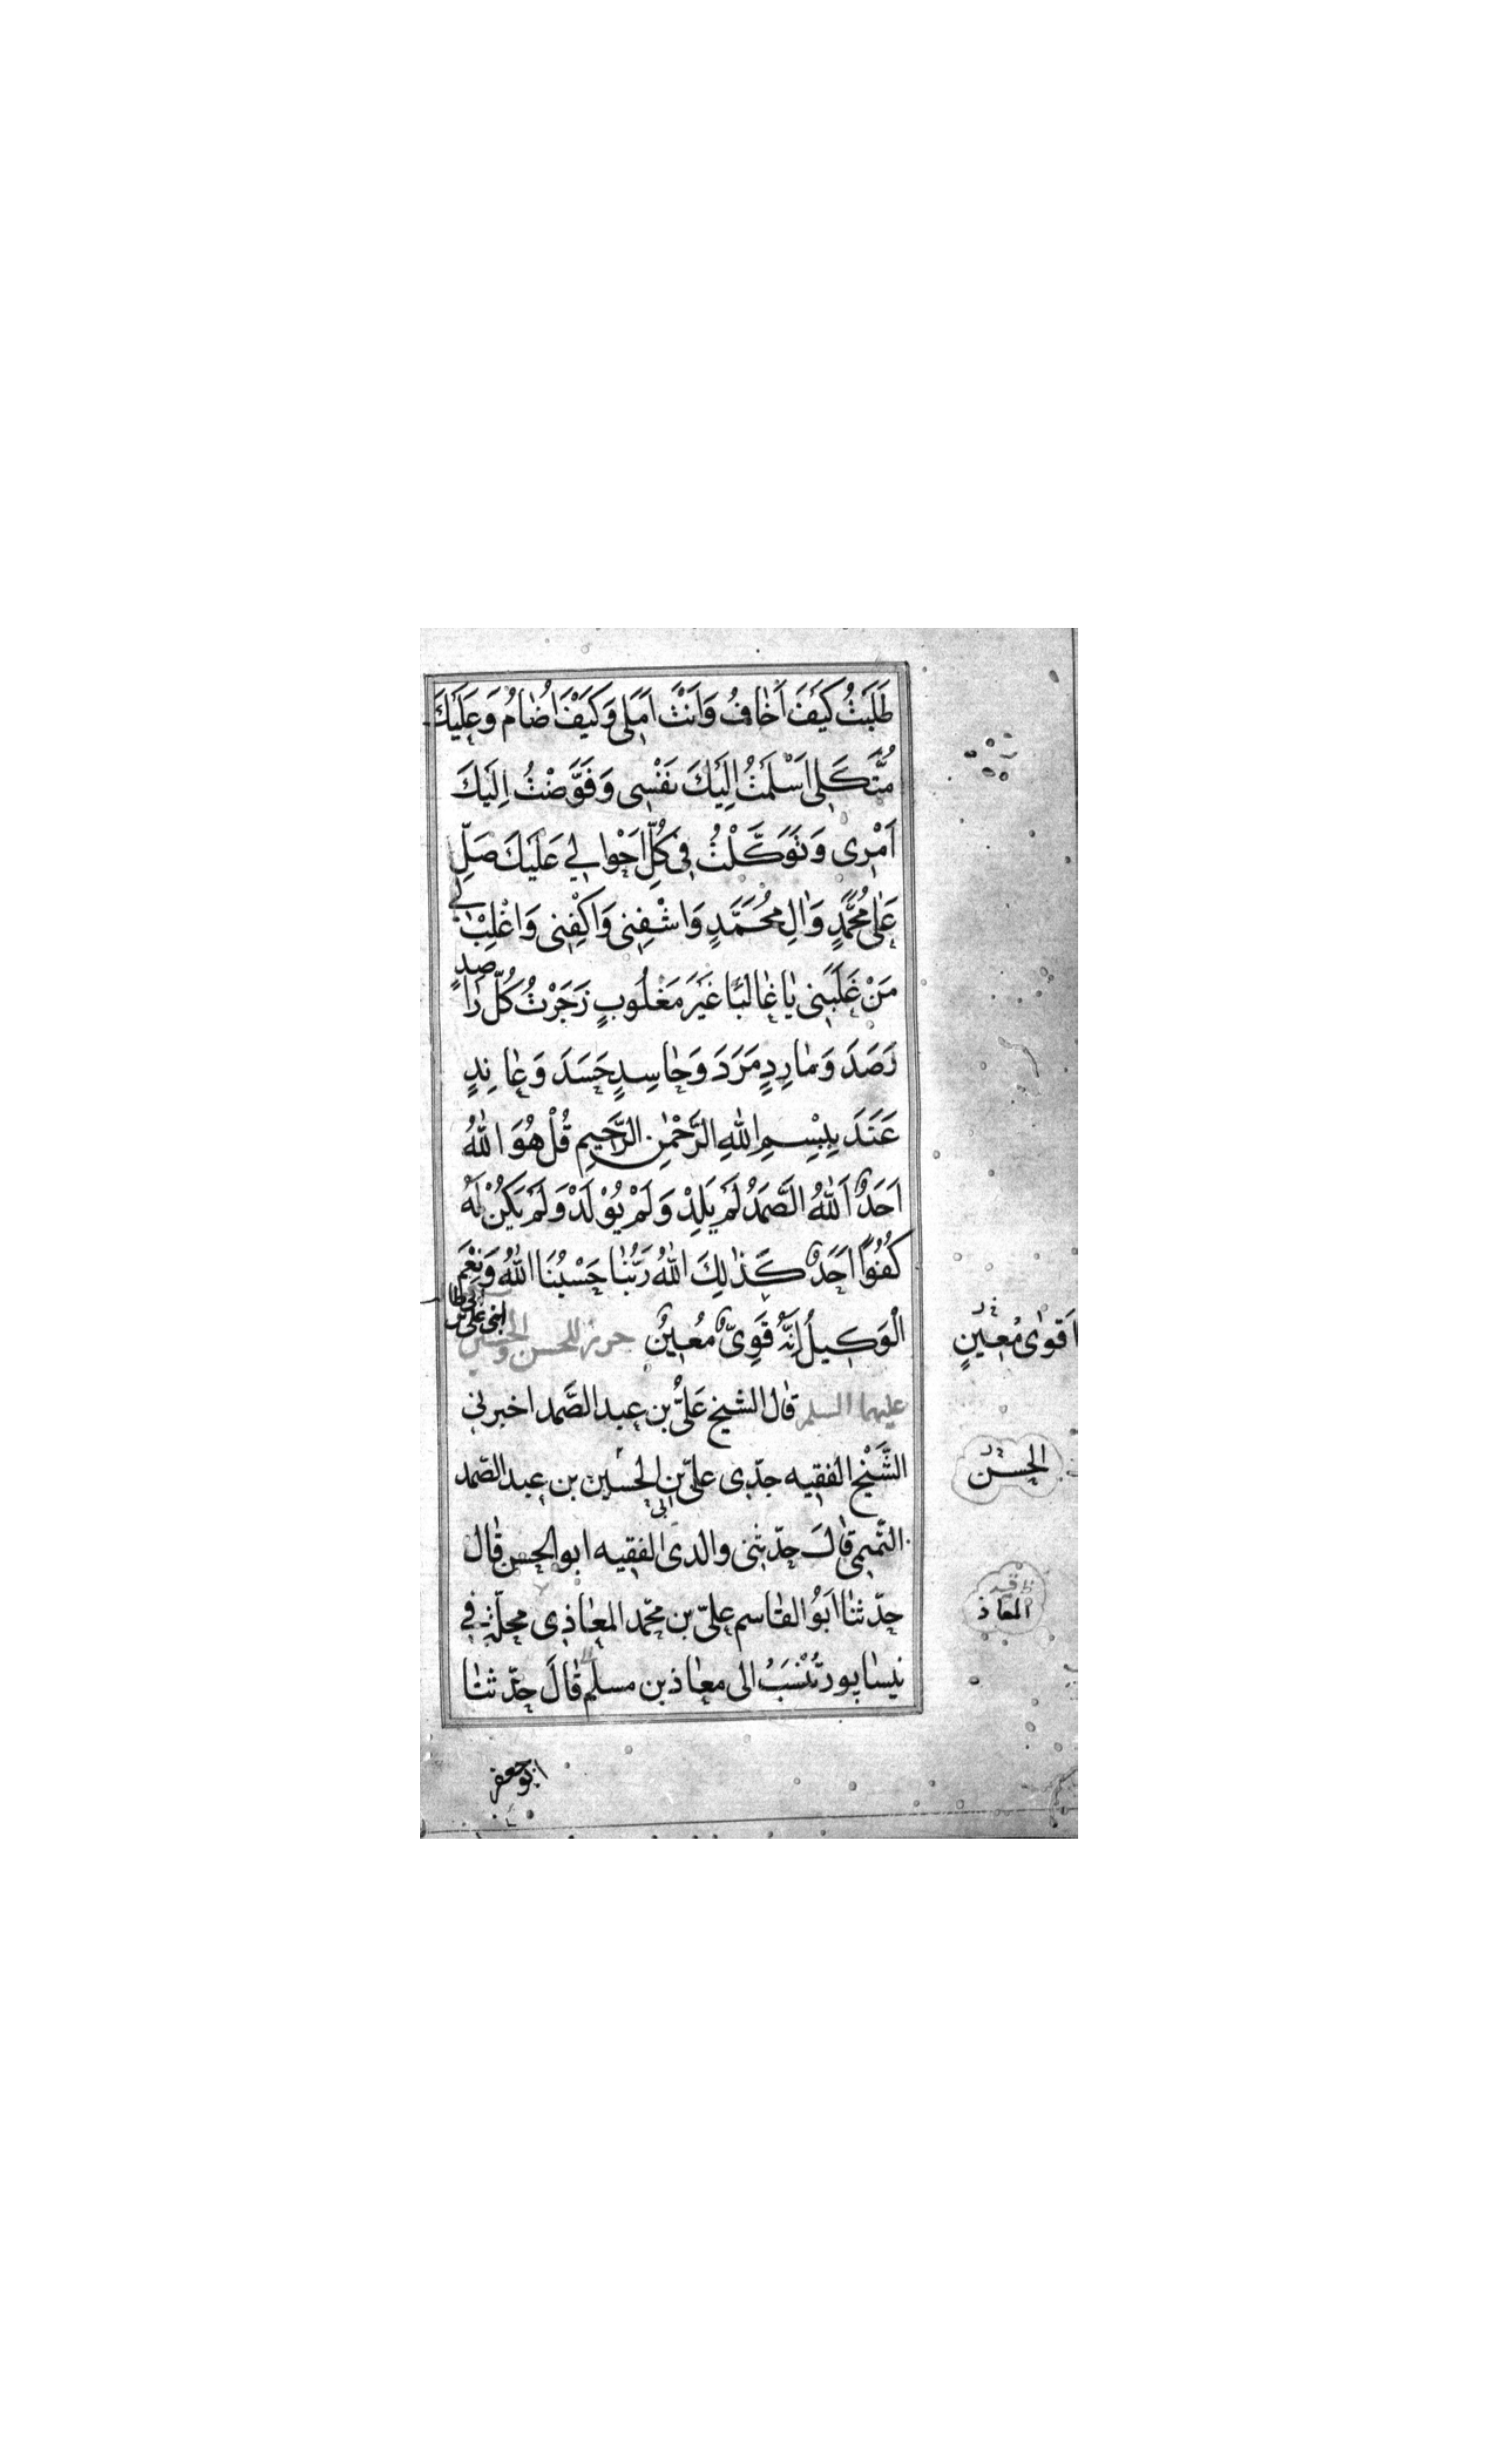 طَلَبَتُ كَيْفَ اَخٰافُ وَاَنْتَ اَمَلى وَكَيْفَ اُضٰامُ وَعَلَيْكَ
مُتَّكَلِى اَسْلَمْتُ اِلَيْكَ نَفْسِى وَفَوَّضْتُ اِلَيْكَ
اَمْرِى وَتَوَكَّلْتُ فِى كُلِّ اَحْوٰالِي عَلَيْكَ صَلِّ
عَلٰى مُحَمَّدٍ وَاٰلِ مُحَمَّدٍ وَاشْفِنِى وَاكْفِنِى وَاغْلِبْ لِي
مَنْ غَلَبَنِى يٰا غٰالِبًا غَيْرَ مَغْلُوبٍ زَجَرْتُ كُلَّ رٰاصِدٍ
رَصَدَ وَمٰارِدٍ مَرَدَ وَحٰاسِدٍ حَسَدَ وَعٰانِدٍ
عَنَدَ بِبِسْمِ اللّٰهِ الرَّحْمٰنِ الرَّحِيمِ قُلْ هُوَ اللّٰهُ
اَحَدٌ اَللّٰهُ الصَّمَدُ لَمْ يَلِدْ وَلَمْ يُوْلَدْ وَلَمْ يَكُنْ لَهُ
كُفُوًا اَحَدٌ كَذٰلِكَ اللّٰهُ رَبُّنٰا حَسْبُنَا اللّٰهُ وَنِعْمَ
الْوَكِيلُ اِنَّهُ قَوِىٌّ مُعِينٌ حرز للحسن والحسين ابنى على بن ابى طا
اَقوٰى مُعينٍ
عليهما السلم قٰال الشيخ عَلىُّ بن عبد الصَّمد اخبرنى
الشَّيْخ الفقيه جدّى علىّ بن الحسين بن عبد الصّمد
الحسن
التّميمى قٰالَ حدّثنى والدى الفقيه ابو الحسن قٰال
حدّثنٰا ابَوُ القٰاسم علىّ بن محمّد المعٰاذى محلّة فى
المعاذ
نيسٰابور تُنْسَبُ الى معٰاذ بن مسلم قٰالَ حدّثنٰا
ابو جعفر